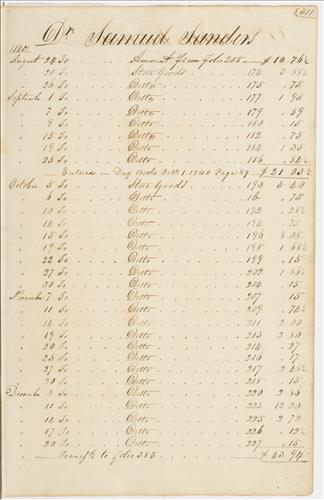 Dr. Samuel Sanders
August 24 To Amount from folio 255 $10 76½
25 To Store Goods 174 3 88½
26 To Ditto 175 .75
September 1 To Ditto 177 .95
7 To Ditto 179 .59
9 To Ditto 180 .15
15 To Ditto 182 .75
19 To Ditto 184 1.35
25 To Ditto 186 .84½
Entered in Day Book Octr. 1. 1840 Page 89 $21 03½
October 5 To Store Goods 190 3.40
6 To Ditto .75
10 To Ditto 192 .28½
14 To Ditto 194 .75
15 To Ditto 196 8 05
19 To Ditto 198 1 68½
22 To Ditto 199 .15
27 To Ditto 202 .86½
30 To Ditto 204 .15
November 7 To Ditto 207 .15
11 To Ditto 209 .74½
14 To Ditto 211 2 00
19 To Ditto 213 2 80
20 To Ditto 214 .27
25 To Ditto 216 .17
27 To Ditto 217 2 48½
30 To Ditto 218 .15
December 3 To Ditto 220 2 86
11 To Ditto 223 12 20
14 To Ditto 225 2 72
17 To Ditto 226 .12½
20 To Ditto 227 .15
Transfd. to folio 384 $43 94